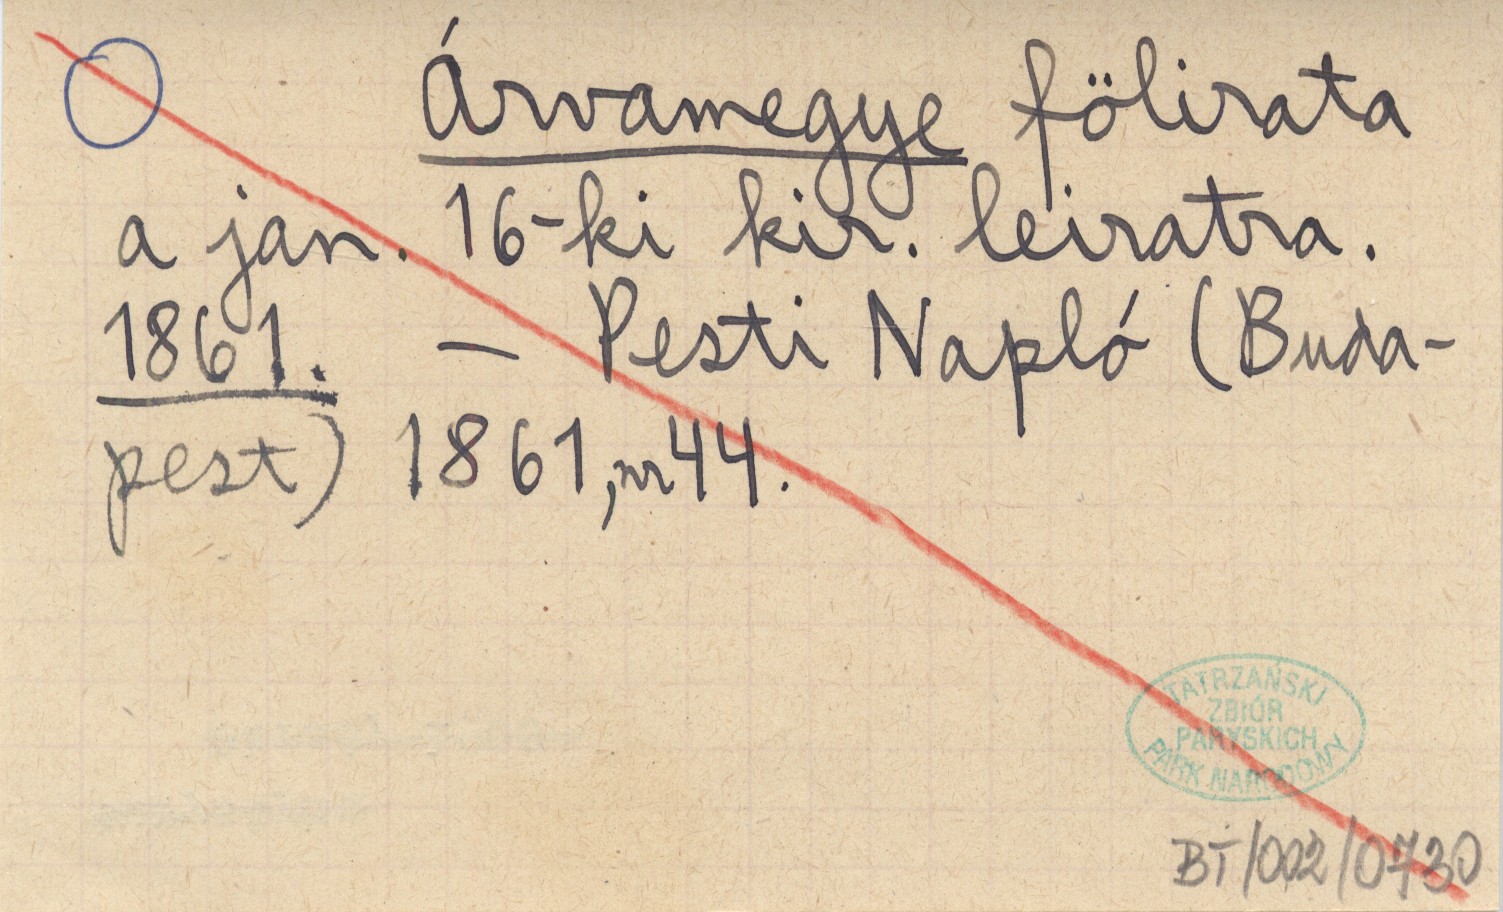 Árvamegye fölirata
a jan. 16-ki kir. leiratra.
1861. — Pesti Napló (Buda-
pest) 1861, nr 44.
TATRZAŃSKI
ZBIÓR
PARYSKICH
PARK NARODOWY
BT/002/0730